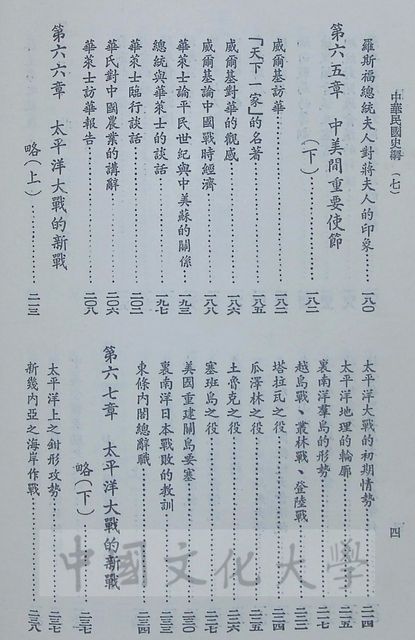 中華民國史綱 (七)
羅斯福總統夫人對蔣夫人的印象……一八〇
第六五章 中美間重要使節
(下)……一八二
威爾基訪華……一八二
「天下一家」的名著……一八五
威爾基對華的觀感……一八六
威爾基論中國戰時經濟……一八八
華萊士論平民世紀與中美蘇的關係……一九三
總統與華萊士的談話……一九七
華萊士臨行談話……二〇二
華氏對中國農業的講辭……二〇六
華萊士訪華報告……二〇八
第六六章 太平洋大戰的新戰
略(上)……二一三
四
太平洋大戰的初期情勢……二一四
太平洋地理的輪廓……二一五
裏南洋羣島的形勢……二一七
越島戰、叢林戰、登陸戰……二二一
塔拉瓦之役……二二四
瓜澤林之役……二二五
土魯克之役……二二六
塞班島之役……二二七
美國重建關島要塞……二三〇
裏南洋日本戰敗的教訓……二三一
東條內閣總辭職……二三四
第六七章 太平洋大戰的新戰
略(下)……二三七
太平洋上之鉗形攻勢……二三七
新幾內亞之海岸作戰……二三八
中國文化大學